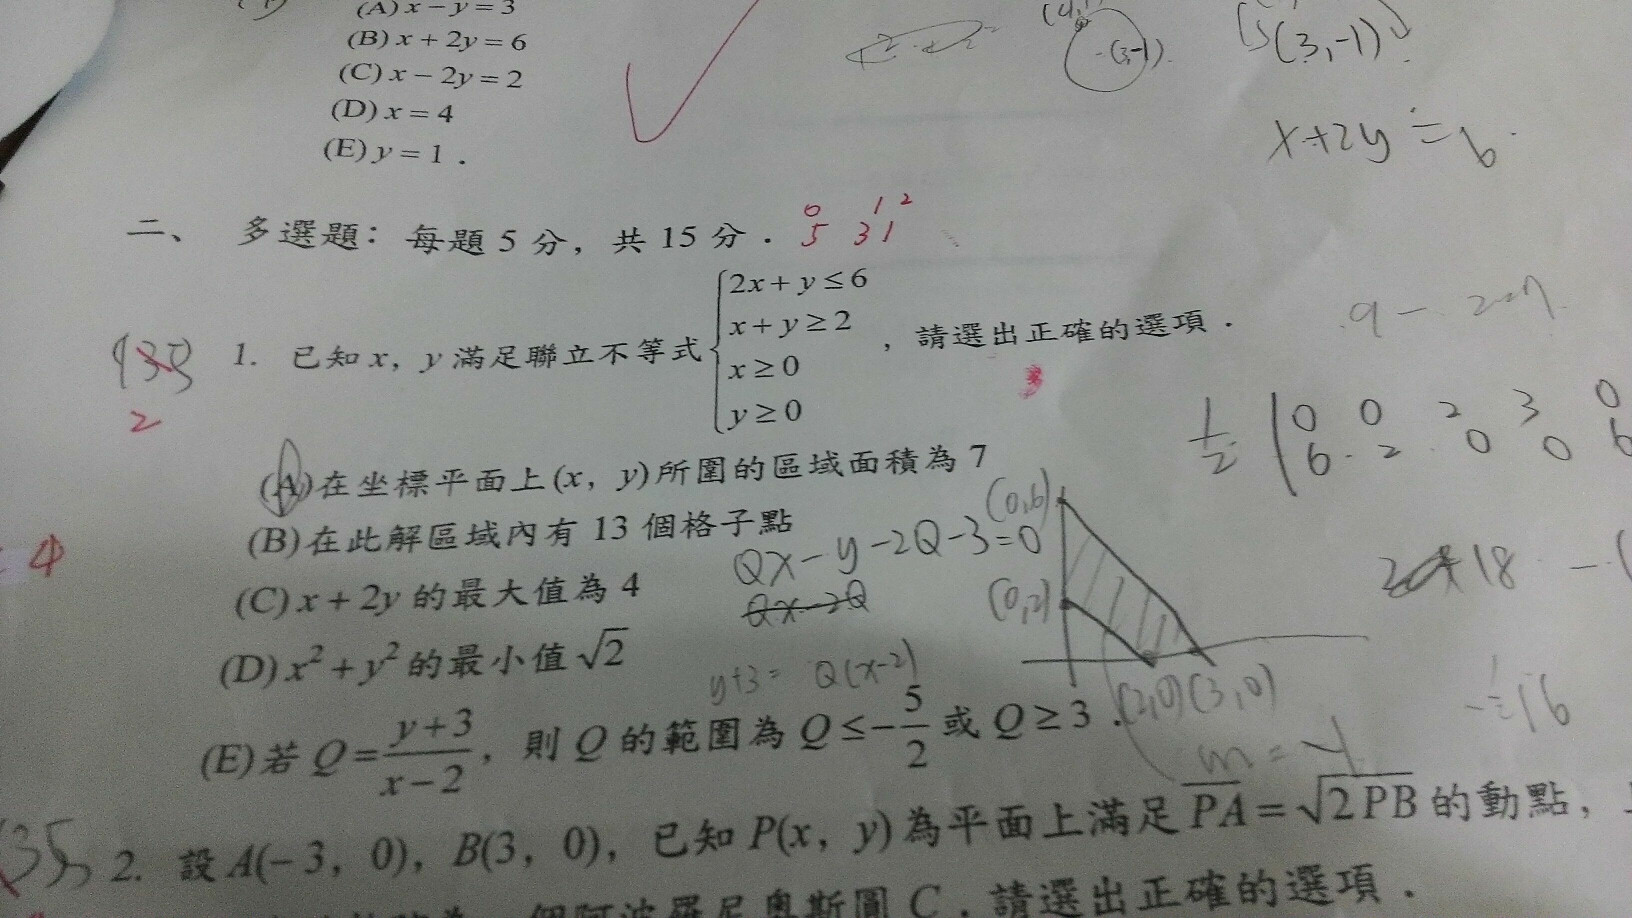 (A) x − y = 3
(B) x + 2y = 6
(C) x − 2y = 2
(D) x = 4
(E) y = 1 .
(3,-1)
(3,-1)
x+2y=6
二、 多選題：每題 5 分，共 15 分．
0 1 2
5 3 1
1. 已知 x，y 滿足聯立不等式
2x + y ≤ 6
x + y ≥ 2
x ≥ 0
y ≥ 0
，請選出正確的選項．
2
(A)在坐標平面上(x，y)所圍的區域面積為 7
(B)在此解區域內有 13 個格子點
(C) x + 2y 的最大值為 4
(D) x² + y² 的最小值 √2
(E)若 Q = (y+3)/(x−2)，則 Q 的範圍為 Q ≤ −5/2 或 Q ≥ 3．
4
Qx-y-2Q-3=0
Qx-2Q
y+3= Q(x-2)
(0,6)
(0,2)
(2,0)(3,0)
m=-1
1/2
0 0 2 3 0
6 2 0 0 6
18
16
2. 設 A(−3，0)，B(3，0)，已知 P(x，y)為平面上滿足 PA = √2 PB 的動點，
個阿波羅尼奧斯圓 C．請選出正確的選項．